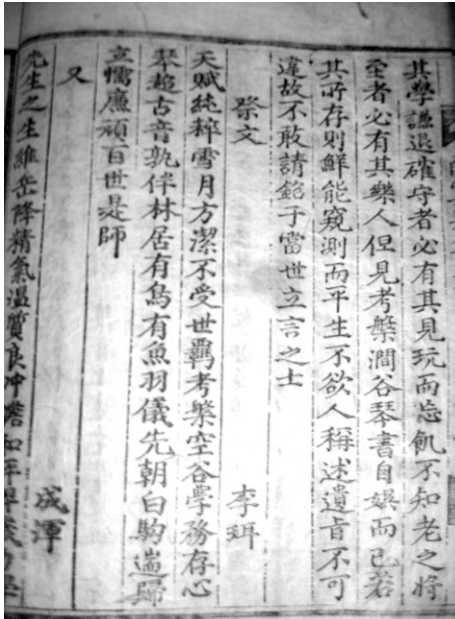 其學謙退確守者必有其見玩而忘飢不知老之將
至者必有其樂人但見考槃澗谷琴書自娛而已若
其所存則鮮能窺測而平生不欲人稱述遺旨不可
違故不敢請銘于當世立言之士
祭文 李珥
天賦純粹雪月方潔不受世羈考槃空谷學務存心
琴趂古音孰伴林居有鳥有魚羽儀先朝白駒遄歸
立懦廉頑百世是師
又 成渾
先生之生維岳降精氣溫質良冲澹和平